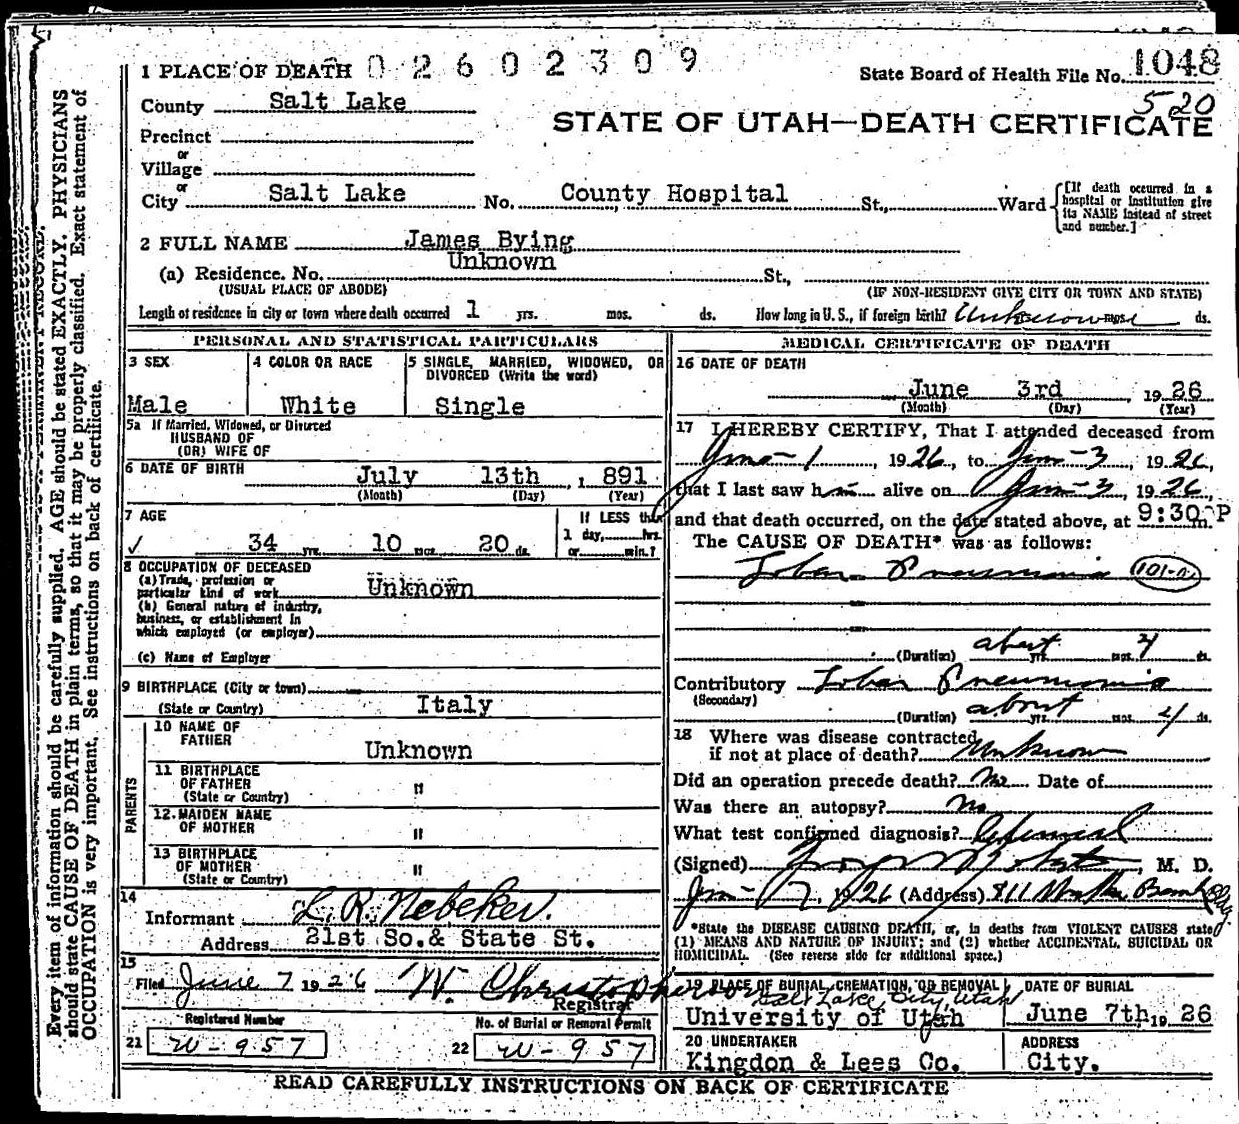 1 PLACE OF DEATH 02602309
State Board of Health File No. 1048
520
County Salt Lake
STATE OF UTAH—DEATH CERTIFICATE
Precinct
or
Village
or
City Salt Lake No. County Hospital St., Ward
[If death occurred in a hospital or institution give its NAME instead of street and number.]
2 FULL NAME James Bying
Unknown
(a) Residence. No. St.,
(USUAL PLACE OF ABODE) (IF NON-RESIDENT GIVE CITY OR TOWN AND STATE)
Length of residence in city or town where death occurred 1 yrs. mos. ds. How long in U. S., if foreign birth? Unknown mos. ds.
PERSONAL AND STATISTICAL PARTICULARS
3 SEX 4 COLOR OR RACE 5 SINGLE, MARRIED, WIDOWED, OR
DIVORCED (Write the word)
Male White Single
5a If Married, Widowed, or Divorced
HUSBAND OF
(OR) WIFE OF
6 DATE OF BIRTH July 13th, 1891
(Month) (Day) (Year)
7 AGE If LESS than
1 day, hrs.
34 yrs. 10 mos. 20 ds. or min.?
8 OCCUPATION OF DECEASED
(a) Trade, profession or
particular kind of work Unknown
(b) General nature of industry,
business, or establishment in
which employed (or employer)
(c) Name of Employer
9 BIRTHPLACE (City or town)
(State or Country) Italy
PARENTS
10 NAME OF
FATHER Unknown
11 BIRTHPLACE
OF FATHER "
(State or Country)
12 MAIDEN NAME
OF MOTHER "
13 BIRTHPLACE
OF MOTHER "
(State or Country)
14
Informant L. R. Nebeker.
Address 21st So. & State St.
15
Filed June 7 1926 W. Christopherson
Registrar
Registered Number No. of Burial or Removal Permit
21 W-957 22 W-957
MEDICAL CERTIFICATE OF DEATH
16 DATE OF DEATH
June 3rd, 1926
(Month) (Day) (Year)
17 I HEREBY CERTIFY, That I attended deceased from
June-1, 1926, to June-3, 1926,
that I last saw him alive on June-3, 1926,
and that death occurred, on the date stated above, at 9:30 P m.
The CAUSE OF DEATH* was as follows:
Lobar Pneumonia
(Duration) about yrs. mos. 4 ds.
Contributory Lobar Pneumonia
(Secondary)
(Duration) about yrs. mos. 4 ds.
18 Where was disease contracted
if not at place of death? Unknown
Did an operation precede death? No Date of
Was there an autopsy? No
What test confirmed diagnosis?
(Signed) , M. D.
June 7, 1926 (Address) 811 Walker Bank Bldg
*State the DISEASE CAUSING DEATH, or, in deaths from VIOLENT CAUSES state
(1) MEANS AND NATURE OF INJURY; and (2) whether ACCIDENTAL, SUICIDAL OR
HOMICIDAL. (See reverse side for additional space.)
19 PLACE OF BURIAL, CREMATION, OR REMOVAL DATE OF BURIAL
Salt Lake City, Utah
University of Utah June 7th, 1926
20 UNDERTAKER ADDRESS
Kingdon & Lees Co. City.
READ CAREFULLY INSTRUCTIONS ON BACK OF CERTIFICATE
Every item of information should be carefully supplied. AGE should be stated EXACTLY. PHYSICIANS
should state CAUSE OF DEATH in plain terms, so that it may be properly classified. Exact statement of
OCCUPATION is very important. See instructions on back of certificate.